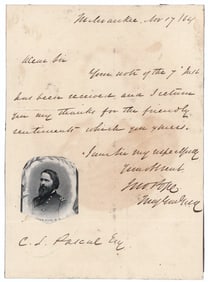 Milwaukee, Nov 17 / 64
Dear Sir
Your note of the 7" Inst
has been received and I return
you my thanks for the friendly
sentiments which you express.
I am Sir very respectfully
Your obt Servt
Jno Pope
Maj Genl
C. L. Pascal Esq